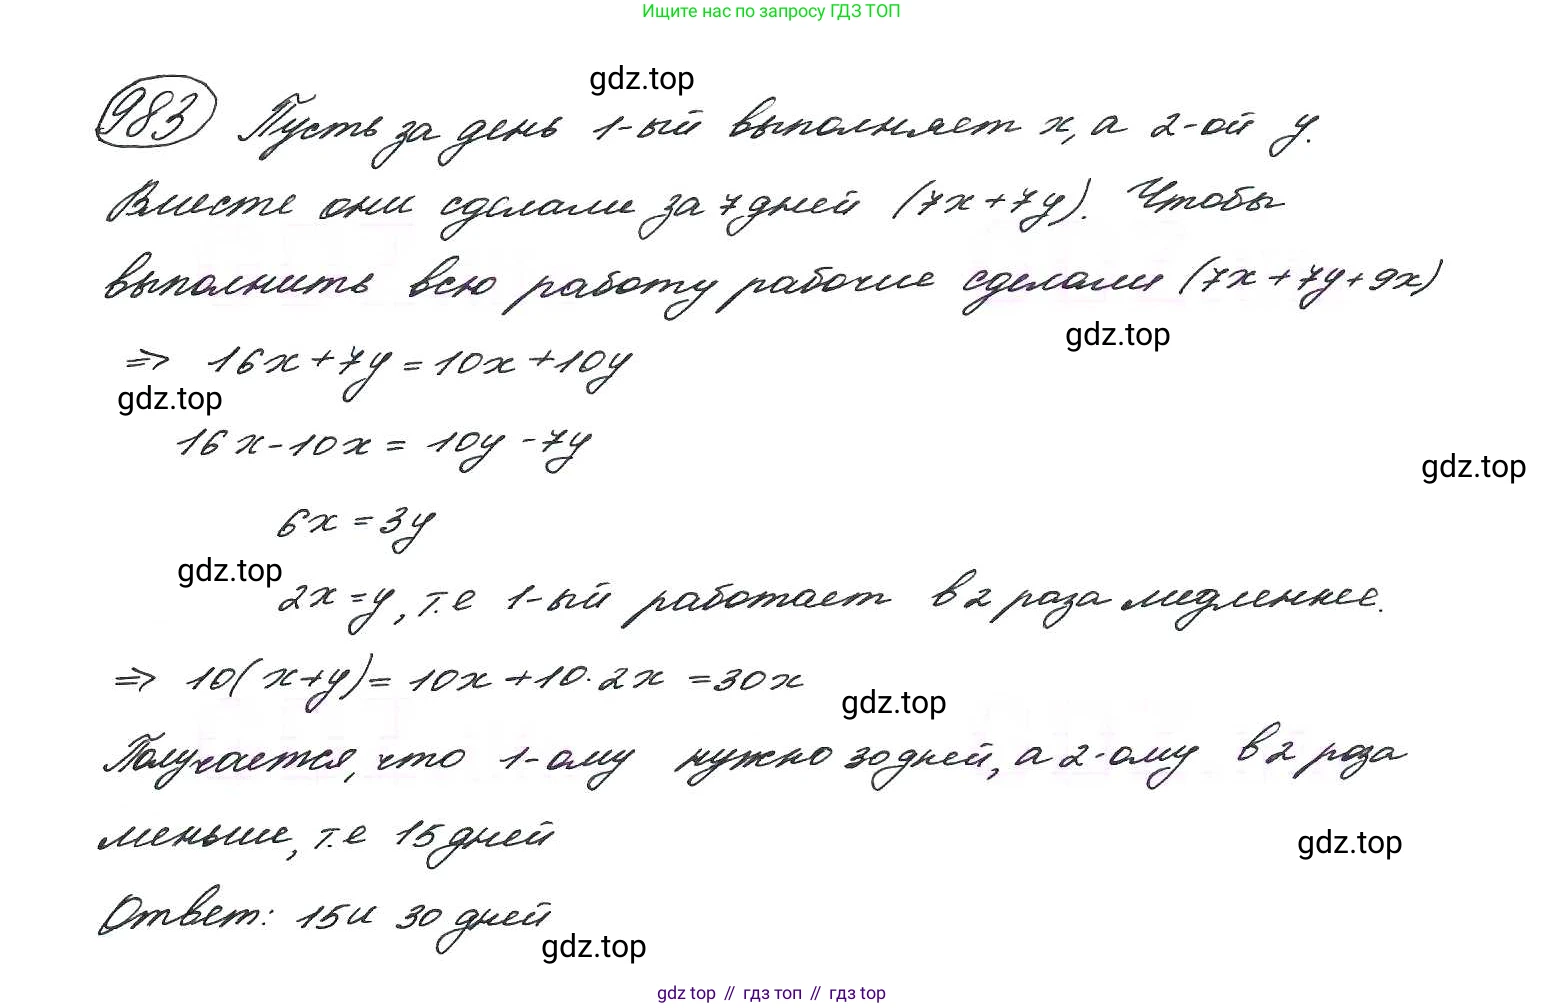 Ищите нас по запросу ГДЗ ТОП
gdz.top
983 Пусть за день 1-ый выполняет x, а 2-ой y.
Вместе они сделали за 7 дней (7x+7y). Чтобы
выполнить всю работу рабочие сделали (7x+7y+9x)
gdz.top
⇒ 16x+7y=10x+10y
gdz.top
16x-10x=10y-7y
gdz.top
6x=3y
gdz.top
2x=y, т.е 1-ый работает в 2 раза медленнее.
⇒ 10(x+y)=10x+10·2x=30x
gdz.top
Получается, что 1-ому нужно 30 дней, а 2-ому в 2 раза
меньше, т.е 15 дней
gdz.top
Ответ: 15 и 30 дней
gdz.top
gdz top // гдз топ // гдз top